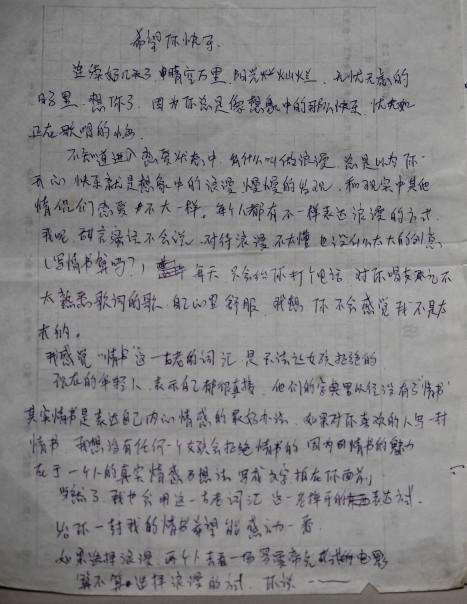 希望你快乐
连续好几天了 晴空万里 阳光灿灿烂 无忧无虑的
日子里 想你了 因为你总是像想象中的那么快乐 犹如
正在歌唱的海
不知道进入恋爱状态中 为什么叫做浪漫 总是以为你
开心 快乐就是想象中的浪漫 慢慢的发现 和现实中其他
情侣们恋爱不大一样。每个人都有不一样表达浪漫的方式
我呢 甜言蜜语不会说 对待浪漫不太懂 也没什么太大的创意
(写情书算吗?) 每天 只会给你打个电话 对你唱支那不
太熟悉歌词的歌 自己心里舒服 我想 你不会感觉 我不是在
我感觉“情书”这一古老的词汇 是无法让女孩拒绝的
现在的年轻人 表示自己都很直接 他们的字典里从往没有了“情书”
其实情书是表达自己内心情感的最好办法 如果对你喜欢的人写一封
情书 我想没有任何一个女孩会拒绝情书的 因为情书的魅力
在于一个人的真实情感 想法 写成文字 摆在你面前
当然了 我也会用这一古老词汇 这一老掉牙的表达方式
给你一封我的情书 希望能感动一番
如果选择浪漫 两个人去看一场 电影
算不算 选择浪漫的方式 你说